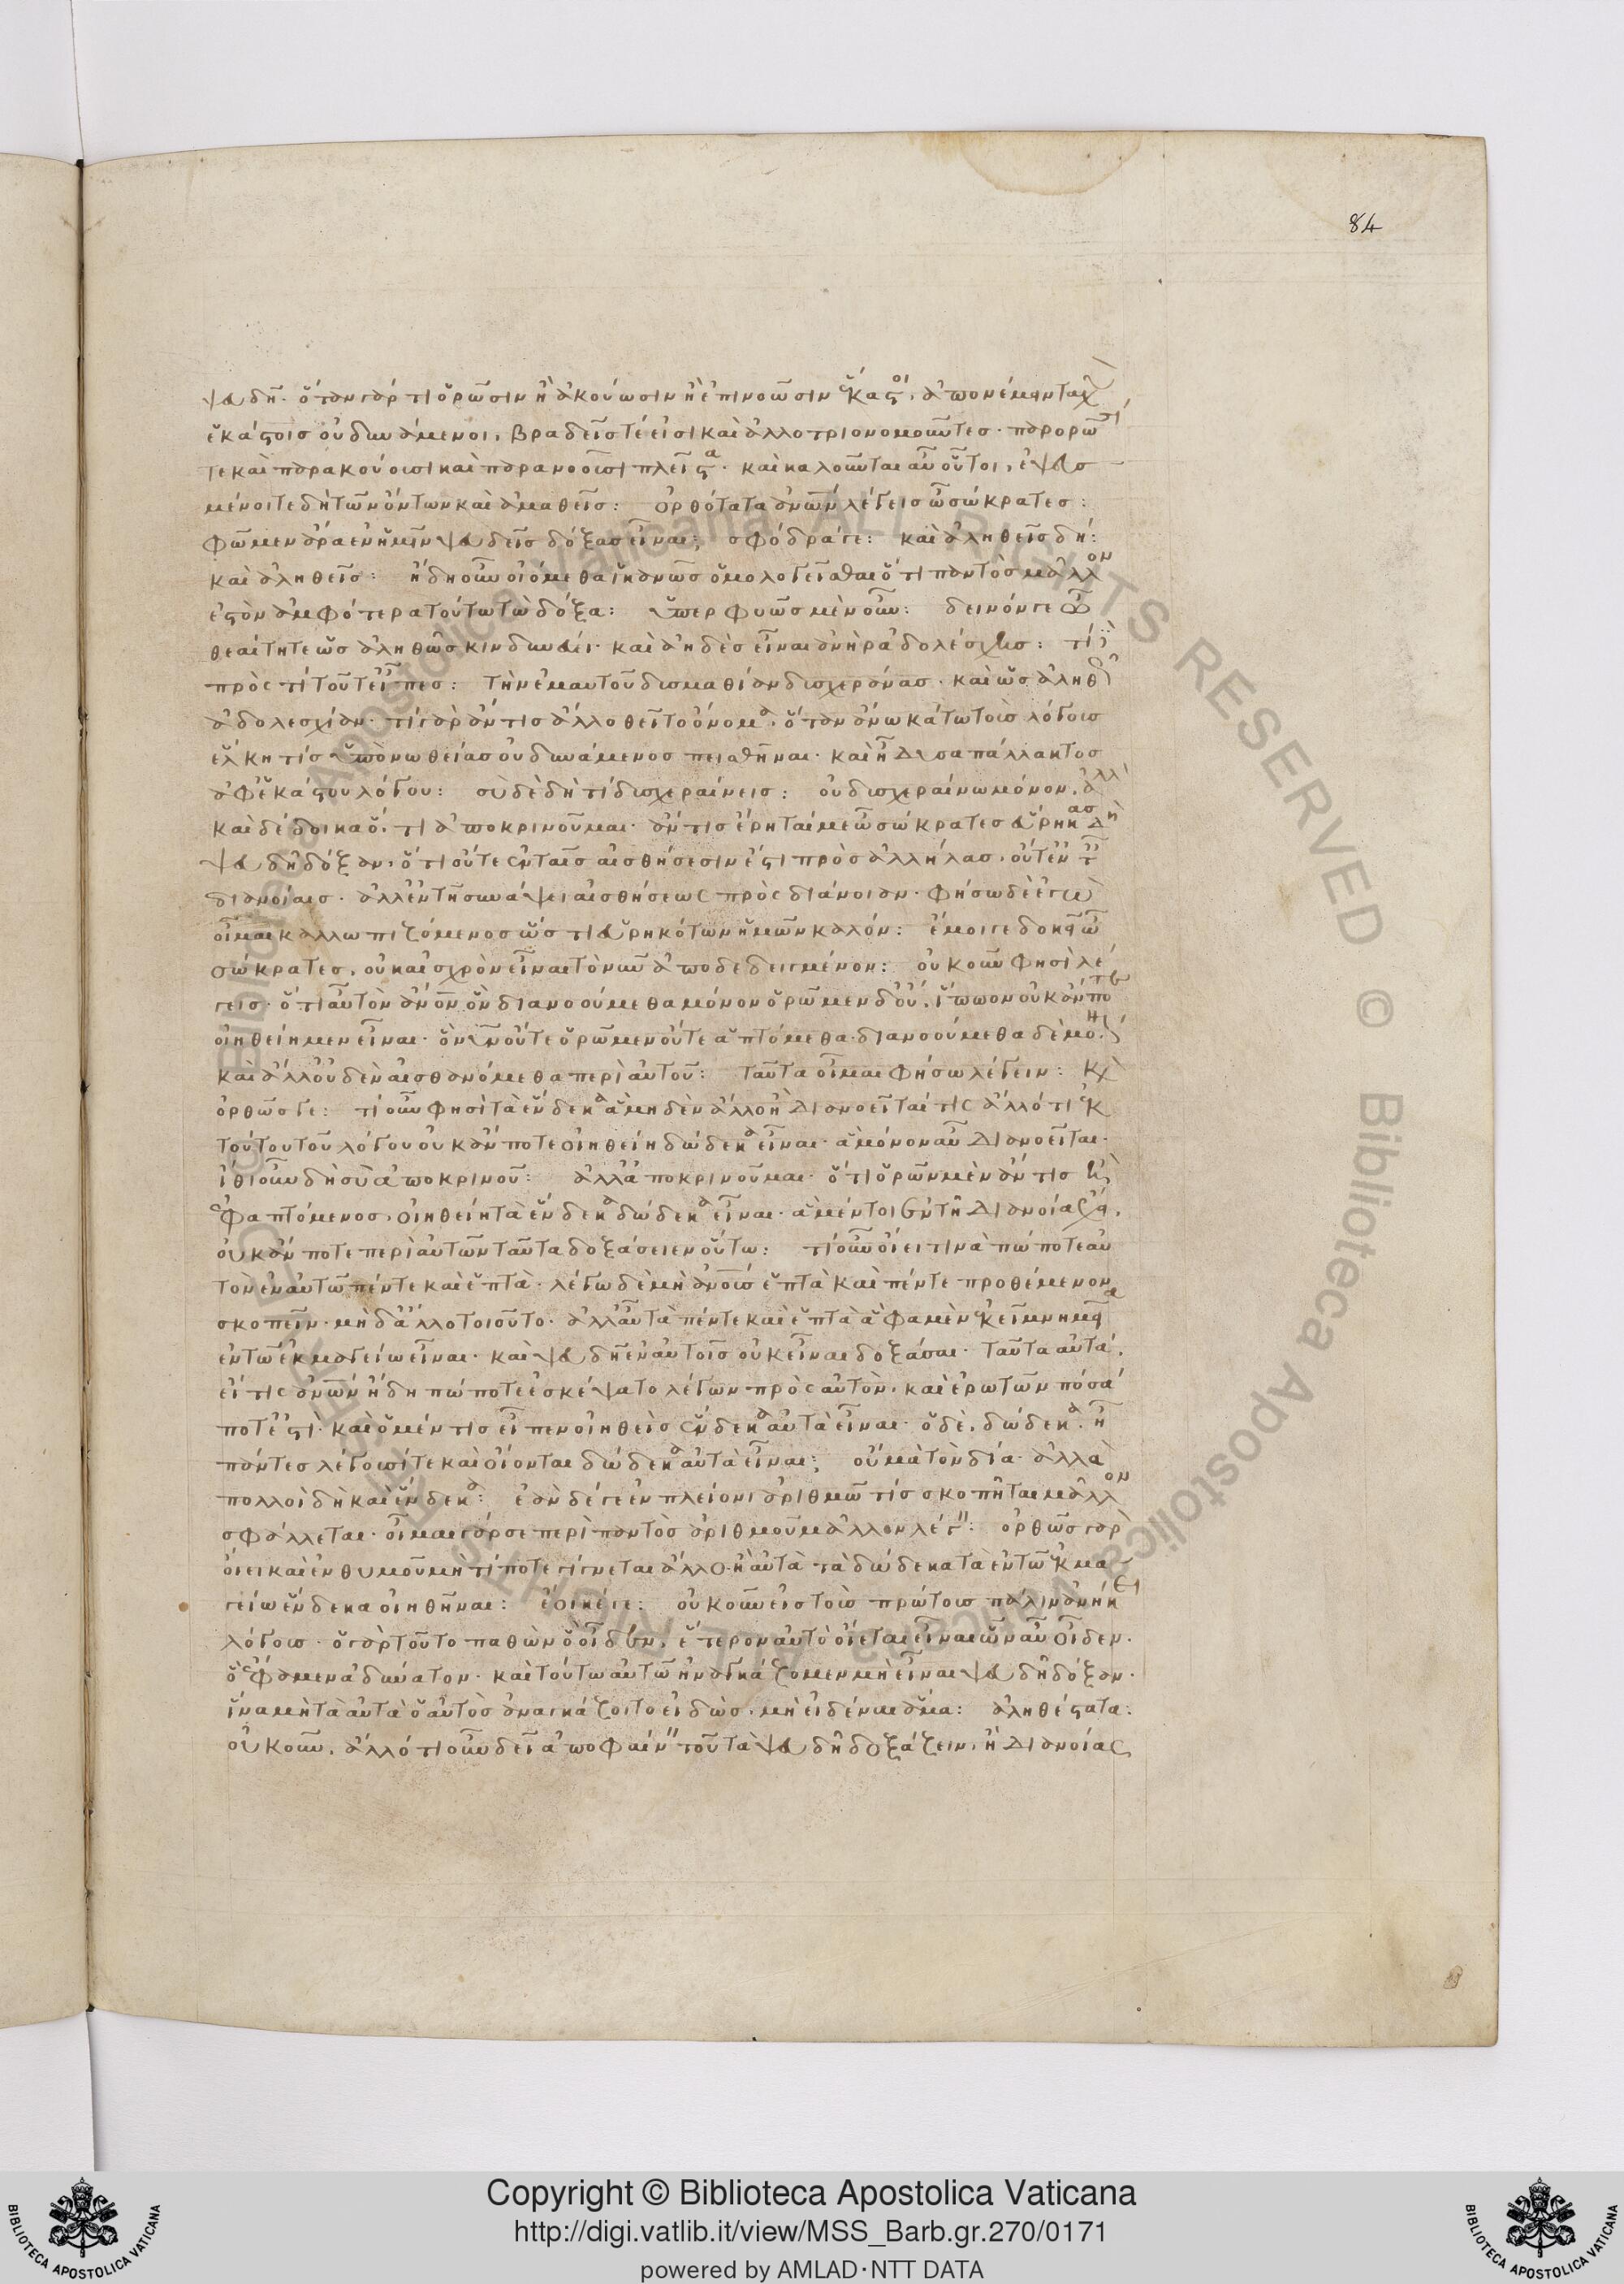 84
ψευδῆ· ὅταν γάρ τι ὁρῶσιν ἢ ἀκούωσιν ἢ ἐπινοῶσιν ἕκαστοι, ἀπονέμειν ταχὺ
ἑκάστοις οὐ δυνάμενοι, βραδεῖς τέ εἰσι καὶ ἀλλοτριονομοῦντες· παρορῶσί
τε καὶ παρακούουσι καὶ παρανοοῦσι πλεῖστα· καὶ καλοῦνται αὖ οὗτοι, ἐψευσ
μένοι τε δὴ τῶν ὄντων καὶ ἀμαθεῖς: ὀρθότατα ἀνθρώπων λέγεις ὦ σώκρατες:
φῶμεν ἄρα ἐν ἡμῖν ψευδεῖς δόξας εἶναι; σφόδρά γε: καὶ ἀληθεῖς δή:
καὶ ἀληθεῖς: ἤδη οὖν οἰόμεθα ἱκανῶς ὁμολογεῖσθαι ὅτι παντὸς μᾶλλον
ἐστὸν ἀμφότερα τούτω τὼ δόξα: ὑπερφυῶς μὲν οὖν: δεινόν γε ὦ
θεαίτητε ὡς ἀληθῶς κινδυνεύει· καὶ ἀηδὲς εἶναι ἀνὴρ ἀδολέσχης: τί;
πρὸς τί τοῦτ εἶπες: τὴν ἐμαυτοῦ δυσμαθίαν δυσχεράνας· καὶ ὡς ἀληθῶς
ἀδολεσχίαν· τί γὰρ ἄν τις ἄλλο θεῖτο ὄνομα, ὅταν ἄνω κάτω τοὺς λόγους
ἕλκῃ τίς ὑπὸ νωθείας οὐ δυνάμενος πεισθῆναι· καὶ ᾖ δυσαπάλλακτος
ἀφ ἑκάστου λόγου: σὺ δὲ δὴ τί δυσχεραίνεις: οὐ δυσχεραίνω μόνον, ἀλλὰ
καὶ δέδοικα ὅ, τι ἀποκρινοῦμαι· ἄν τις ἔρηταί με ὦ σώκρατες εὕρηκας δὴ
ψευδῆ δόξαν, ὅτι οὔτε ἐν ταῖς αἰσθήσεσιν ἔστι πρὸς ἀλλήλας, οὔτ ἐν ταῖς
διανοίαις· ἀλλ ἐν τῇ συνάψει αἰσθήσεως πρὸς διάνοιαν· φήσω δὲ ἐγὼ
οἶμαι καλλωπιζόμενος ὥς τι εὑρηκότων ἡμῶν καλόν: ἔμοιγε δοκεῖ ὦ
σώκρατες, οὐκ αἰσχρὸν εἶναι τὸ νῦν ἀποδεδειγμένον: οὐκοῦν φησὶ λέ
γεις· ὅτι αὖ τὸν ἄνθρωπον ὃν διανοούμεθα μόνον ὁρῶμεν δ οὔ, ἵππον οὐκ ἄν ποτε
οἰηθείημεν εἶναι· ὃν αὖ οὔτε ὁρῶμεν οὔτε ἁπτόμεθα· διανοούμεθα δὲ μόνον.
καὶ ἄλλ οὐδὲν αἰσθανόμεθα περὶ αὐτοῦ: ταῦτα οἶμαι φήσω λέγειν: καὶ
ὀρθῶς γε: τί οὖν φησὶ τὰ ἕνδεκα ἃ μηδὲν ἄλλο ἢ διανοεῖταί τις ἄλλό τι ἐκ
τούτου τοῦ λόγου οὐκ ἄν ποτε οἰηθείη δώδεκα εἶναι· ἃ μόνον αὖ διανοεῖται·
ἴθι οὖν δὴ σὺ ἀποκρινοῦ: ἀλλ ἀποκρινοῦμαι· ὅτι ὁρῶν μὲν ἄν τις ἢ
ἐφαπτόμενος, οἰηθείη τὰ ἕνδεκα δώδεκα εἶναι· ἃ μέντοι ἐν τῇ διανοίᾳ ἔχει,
οὐκ ἄν ποτε περὶ αὐτῶν ταῦτα δοξάσειεν οὕτω: τί οὖν οἴει τινὰ πώποτε αὐ
τὸν ἐν αὑτῶ πέντε καὶ ἑπτὰ· λέγω δὲ μὴ ἀνθρώπους ἑπτὰ καὶ πέντε προθέμενον
σκοπεῖν· μηδ ἄλλο τοιοῦτο· ἀλλ αὐτὰ πέντε καὶ ἑπτὰ ἃ φαμὲν ἐκεῖ μνημεῖα
ἐν τῶ ἐκμαγείω εἶναι· καὶ ψευδῆ ἐν αὐτοῖς οὐκ εἶναι δοξάσαι· ταῦτα αὐτά,
εἴ τις ἀνθρώπων ἤδη πώποτε ἐσκέψατο λέγων πρὸς αὑτὸν, καὶ ἐρωτῶν πόσά
ποτ ἐστὶ· καὶ ὁ μέν τις εἶπεν οἰηθεὶς ἕνδεκα αὐτὰ εἶναι· ὁ δὲ, δώδεκα. ἢ
πάντες λέγουσί τε καὶ οἴονται δώδεκα αὐτὰ εἶναι; οὐ μὰ τὸν δία· ἀλλὰ
πολλοὶ δὴ καὶ ἕνδεκα: ἐὰν δέ γε ἐν πλείονι ἀριθμῶ τίς σκοπῆται μᾶλλον
σφάλλεται· οἶμαι γάρ σε περὶ παντὸς ἀριθμοῦ μᾶλλον λέγειν: ὀρθῶς γὰρ
οἴει καὶ ἐνθυμοῦ μή τί ποτε γίγνεται ἄλλο· ἢ αὐτὰ τὰ δώδεκα τὰ ἐν τῶ ἐκμα
γείω ἕνδεκα οἰηθῆναι: ἔοικέ γε: οὐκοῦν εἰς τοὺς πρώτους πάλιν ἀνήκει
λόγους· ὁ γὰρ τοῦτο παθὼν ὃ οἶδεν, ἕτερον αὐτὸ οἴεται εἶναι ὧν αὖ οἶδεν·
ὃ ἔφαμεν ἀδύνατον· καὶ τούτω αὐτῶ ἠναγκάζομεν μὴ εἶναι ψευδῆ δόξαν·
ἵνα μὴ τὰ αὐτὰ ὁ αὐτὸς ἀναγκάζοιτο εἰδὼς, μὴ εἰδέναι ἅμα: ἀληθέστατα:
οὐκοῦν, ἄλλό τι οὖν δεῖ ἀποφαίνειν τοῦ τὰ ψευδῆ δοξάζειν, ἢ διανοίας
Copyright © Biblioteca Apostolica Vaticana
http://digi.vatlib.it/view/MSS_Barb.gr.270/0171
powered by AMLAD·NTT DATA